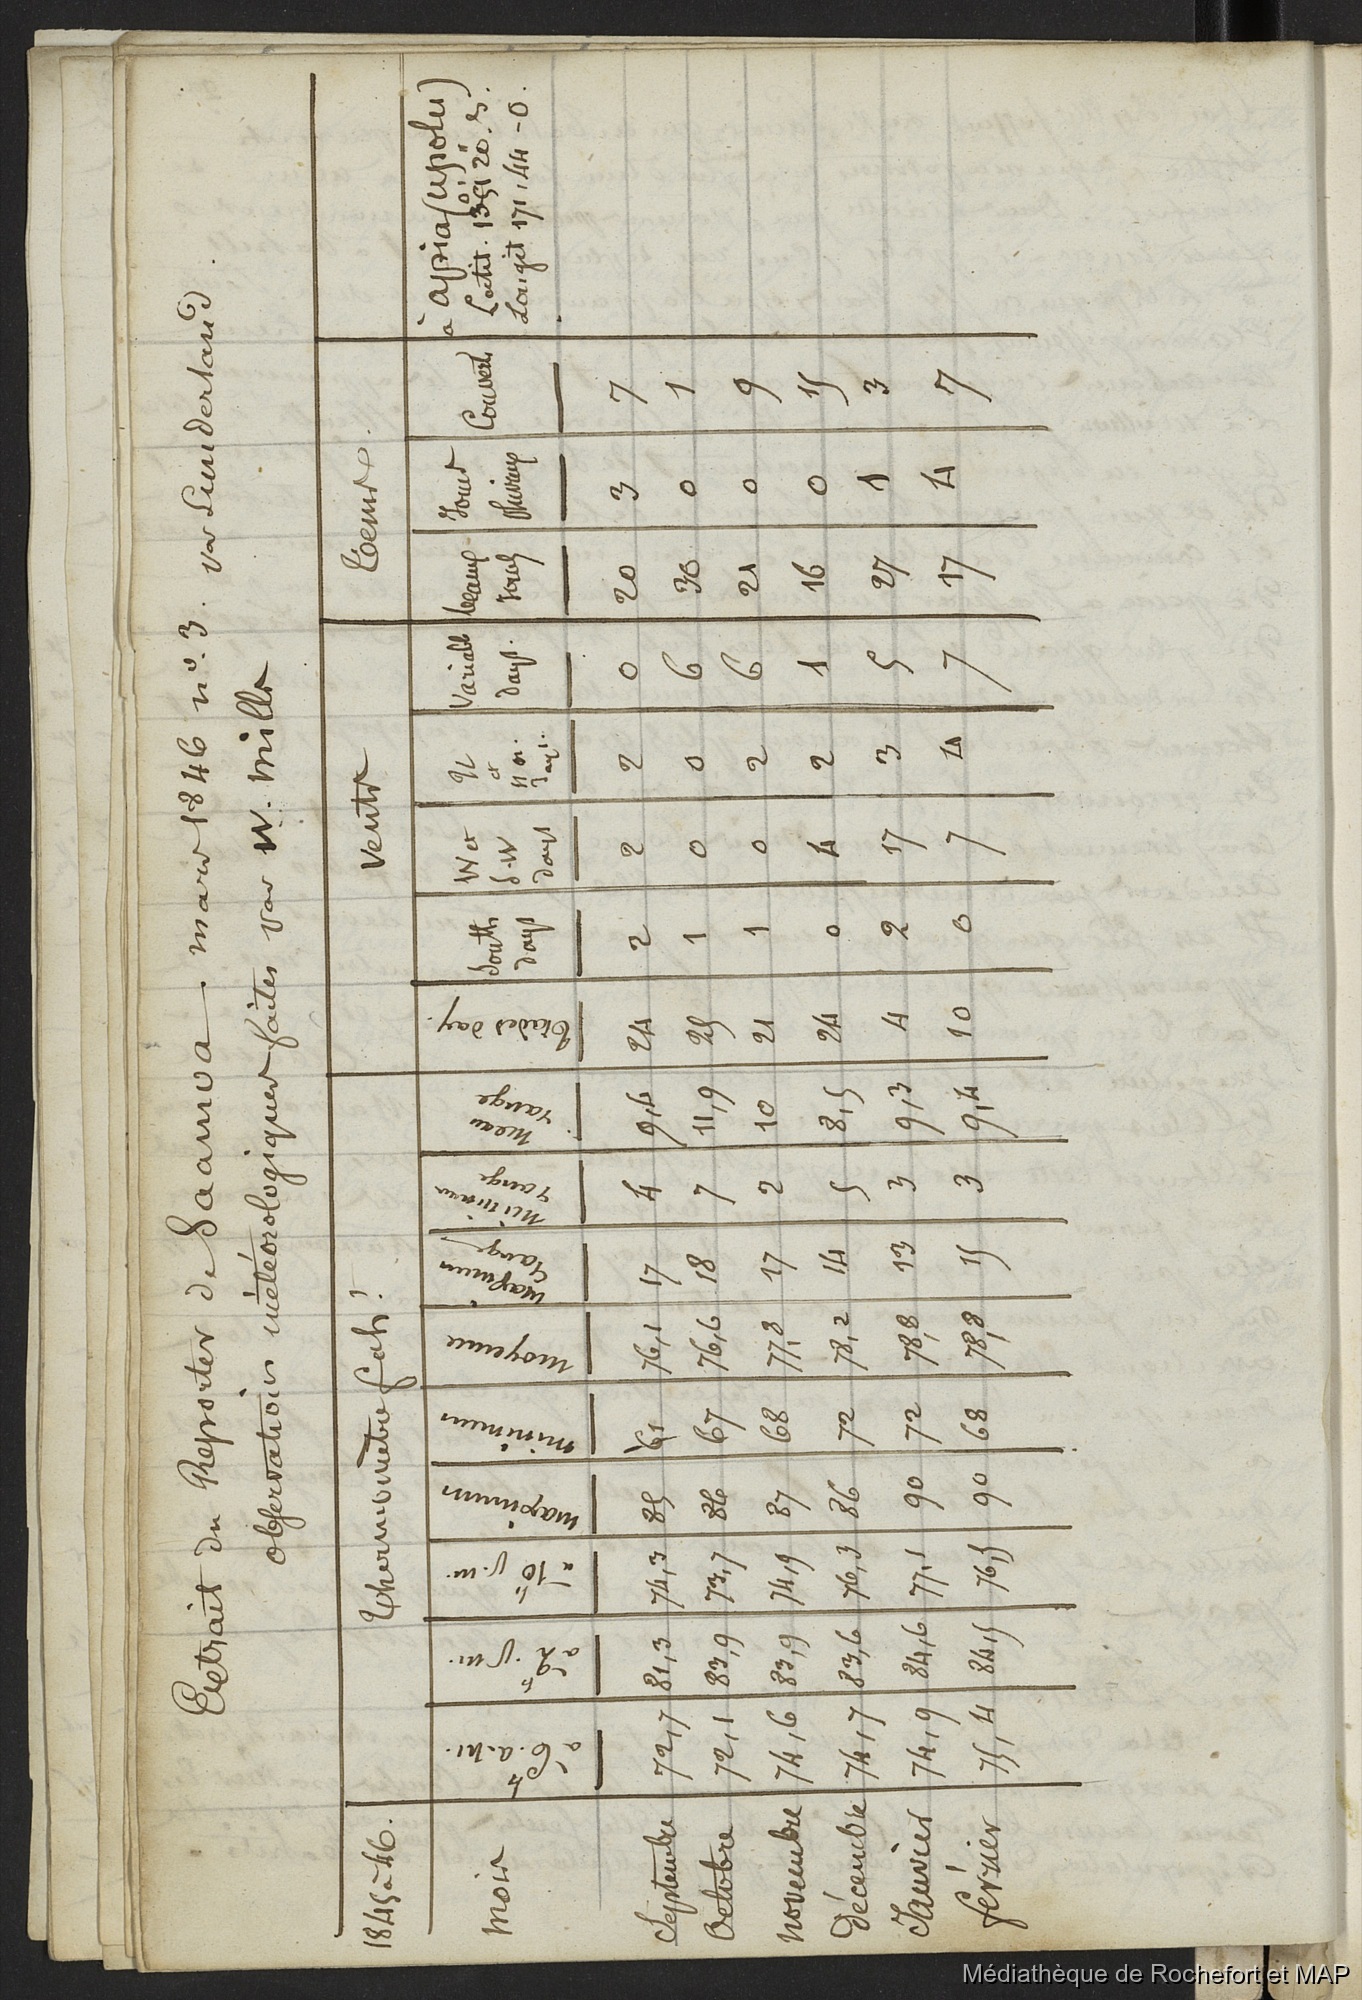 Extrait du Reporter de Saamoa. mars 1846 n.o 3. par Sunderland.
observations météorologiques faites par W. Mills
1845 à 46. Thermomètre Fah! Vents Temps.
mois à 6 h a.m. à 2 h p.m. à 10 h p.m. maximum minimum moyenne maximum range minimum range mean range Trades day. South days W et S-W days N et days. Variable days. beaux jours jours pluvieux Couvert à apia (upolu)
Latit. 13° 51' 20" S.
Longit 171, 44 - O.
Septembre 72,7 81,3 74,3 85 61 76,1 17 4 9,4 24 2 2 2 0 20 3 7
Octobre 72,1 83,9 73,7 86 67 76,6 18 7 11,9 25 1 0 0 6 30 0 1
novembre 74,6 83,9 74,9 87 68 77,8 17 2 10 21 1 0 2 6 21 0 9
décembre 74,7 83,6 76,3 86 72 78,2 14 5 8,5 24 0 4 2 1 16 0 15
Janvier 74,9 84,6 77,1 90 72 78,8 13 3 9,3 4 2 17 3 5 27 1 3
février 75,4 84,5 76,5 90 68 78,8 15 3 9,4 10 0 7 4 7 17 4 7
Médiathèque de Rochefort et MAP